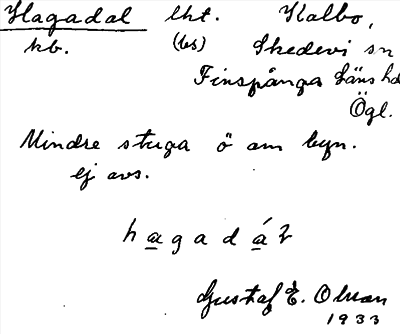 Hagadal lht. Kalbo,
kb. (bs) Skedevi sn
Finspånga läns hd
Ögl.
Mindre stuga ö om byn.
ej avs.
hagadáł
Gustaf E. Olsson
1933